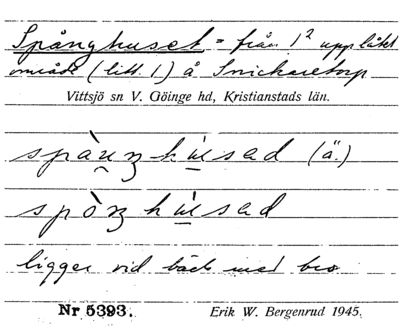 Spånghuset = från 1² upplåtet
område (litt. 1) å Snickaretorp
Vittsjö sn V. Göinge hd, Kristianstads län.
spàu̯ŋhu̇sad (ä.)
spòŋhu̇sad
ligger vid bäck med bro
Nr 5393. Erik W. Bergenrud 1945.